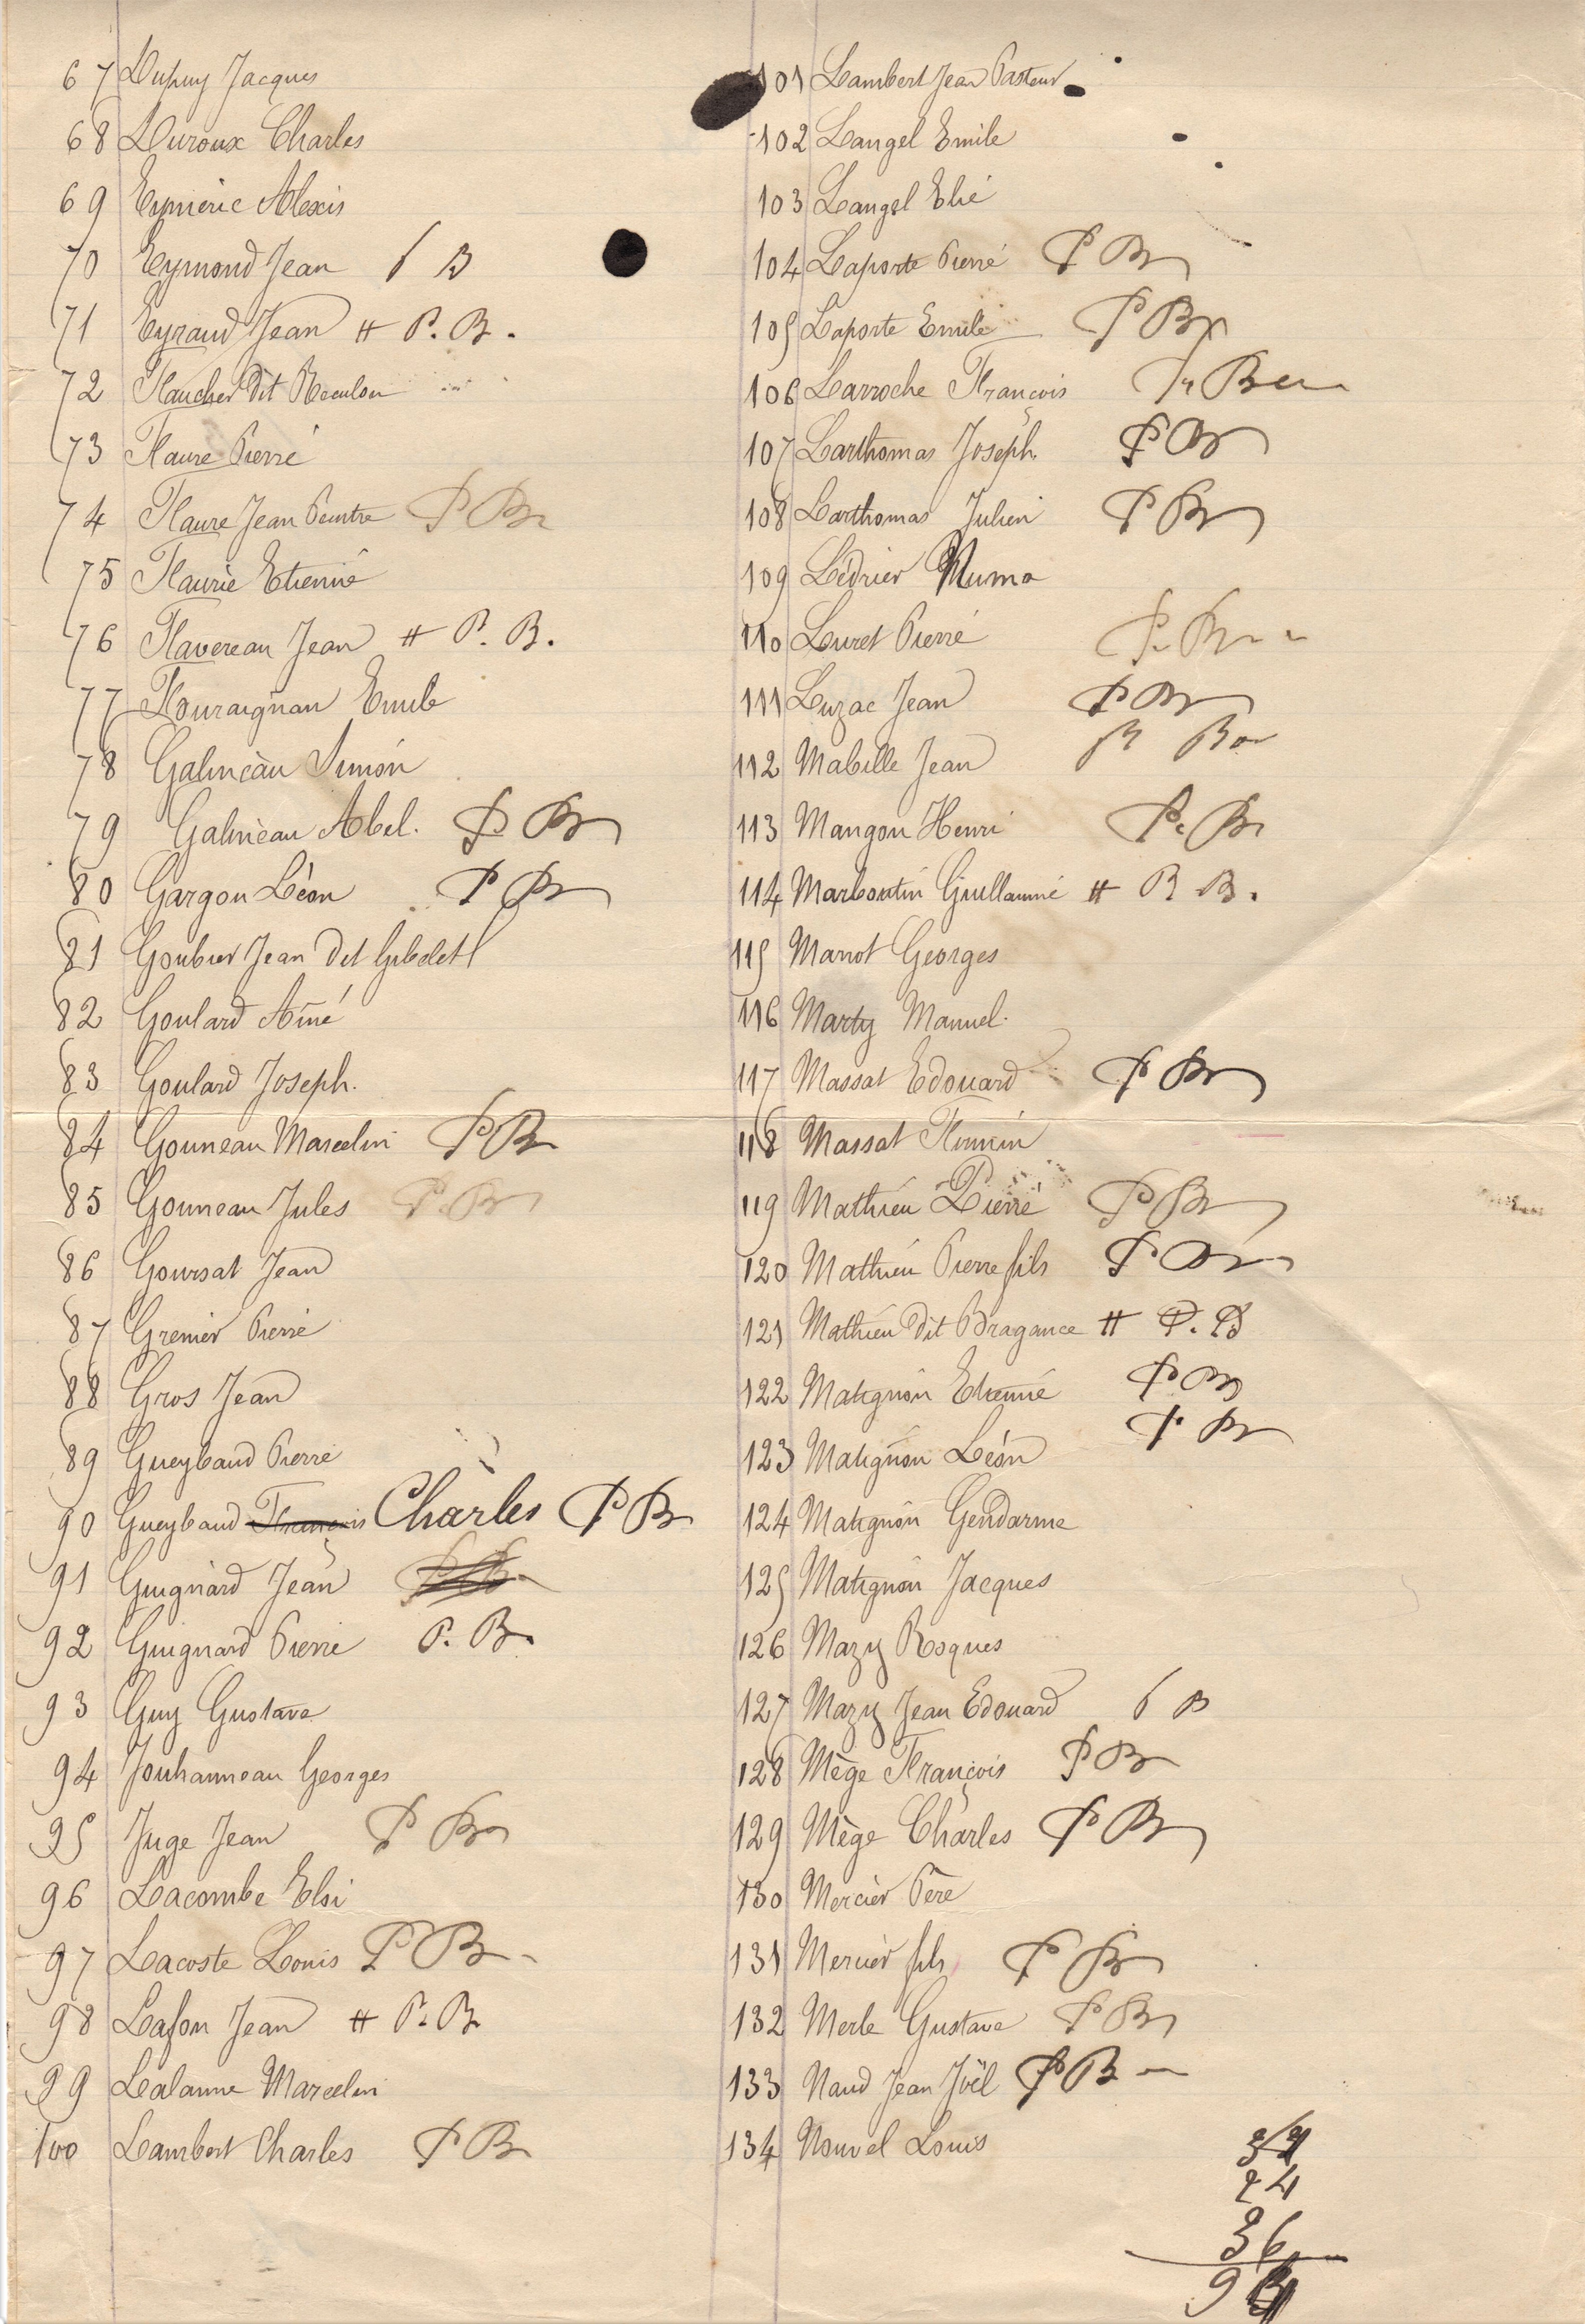 67 Dupuy Jacques
68 Duroux Charles
69 Eymeric Alexis
70 Eymond Jean P B
71 Eyraud Jean # P. B.
72 Faucher dit
73 Faure Pierre
74 Faure Jean Peintre P B
75 Faurie Etienne
76 Favereau Jean # P. B.
77 Fouraignan Emile
78 Galineau Simon
79 Galineau Abel. P B
80 Gargon Léon P B
81 Goubier Jean dit
82 Goulard Aîné
83 Goulard Joseph.
84 Gouneau Marcelin P B
85 Gouneau Jules P. B
86 Goursat Jean
87 Grenier Pierre
88 Gros Jean
89 Gueybaud Pierre
90 Gueybaud François Charles P B
91 Guignard Jean P B
92 Guignard Pierre P. B.
93 Guy Gustave
94 Jouhanneau Georges
95 Juge Jean P B
96 Lacombe
97 Lacoste Louis P B
98 Lafon Jean # P. B.
99 Lalanne Marcelin
100 Lambert Charles P B
101 Lambert Jean Pasteur
102 Langel Emile
103 Langel Elie
104 Laporte Pierre P B
105 Laporte Emile P B
106 Larroche François P B
107 Larthomas Joseph. P B
108 Larthomas Julien P B
109 Lédrier Numa
110 Luret Pierre P. B
111 Luzac Jean P B
112 Mabille Jean P B
113 Mangon Henri P. B
114 Marboutin Guillaume # P. B.
115 Marrot Georges
116 Marty Manuel.
117 Massat Edouard P B
118 Massat Firmin
119 Mathieu Pierre P B
120 Mathieu Pierre fils P B
121 Mathieu dit Bragance # P. B
122 Matignon Etienne P B
123 Matignon Léon P B
124 Matignon Gendarme
125 Matignon Jacques
126 Mazy Rosques
127 Mazy Jean Edouard P B
128 Mège François P B
129 Mège Charles P B
130 Mercier Père
131 Mercier fils P B
132 Merle Gustave P B
133 Naud Jean Joël P B
134 Nouvel Louis
24
36